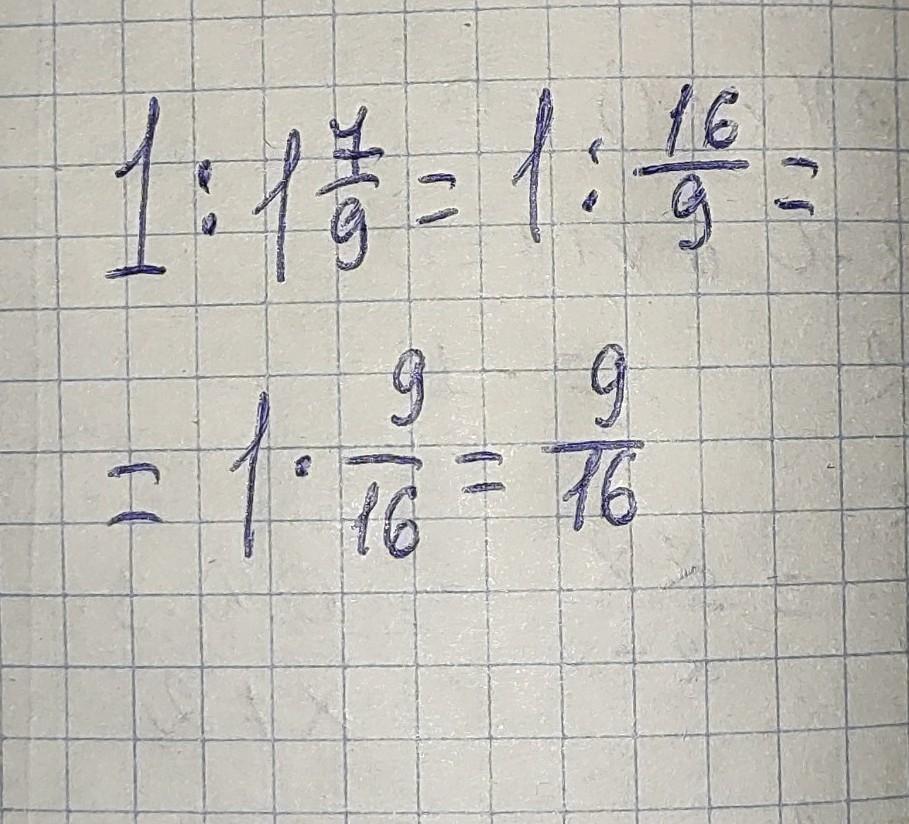 1 : 1 7/9 = 1 : 16/9 =
= 1 · 9/16 = 9/16